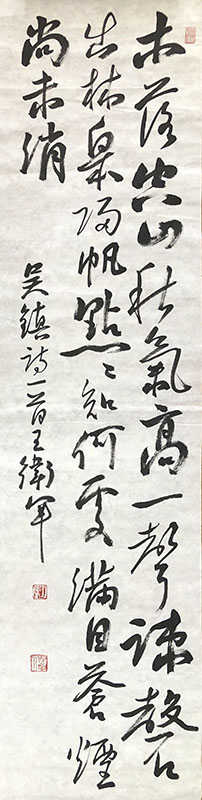 木落空山秋氣高一聲疎磬
出林皋歸帆點〻知何處滿目蒼煙
尚未消
吴鎮詩一首王衛軍